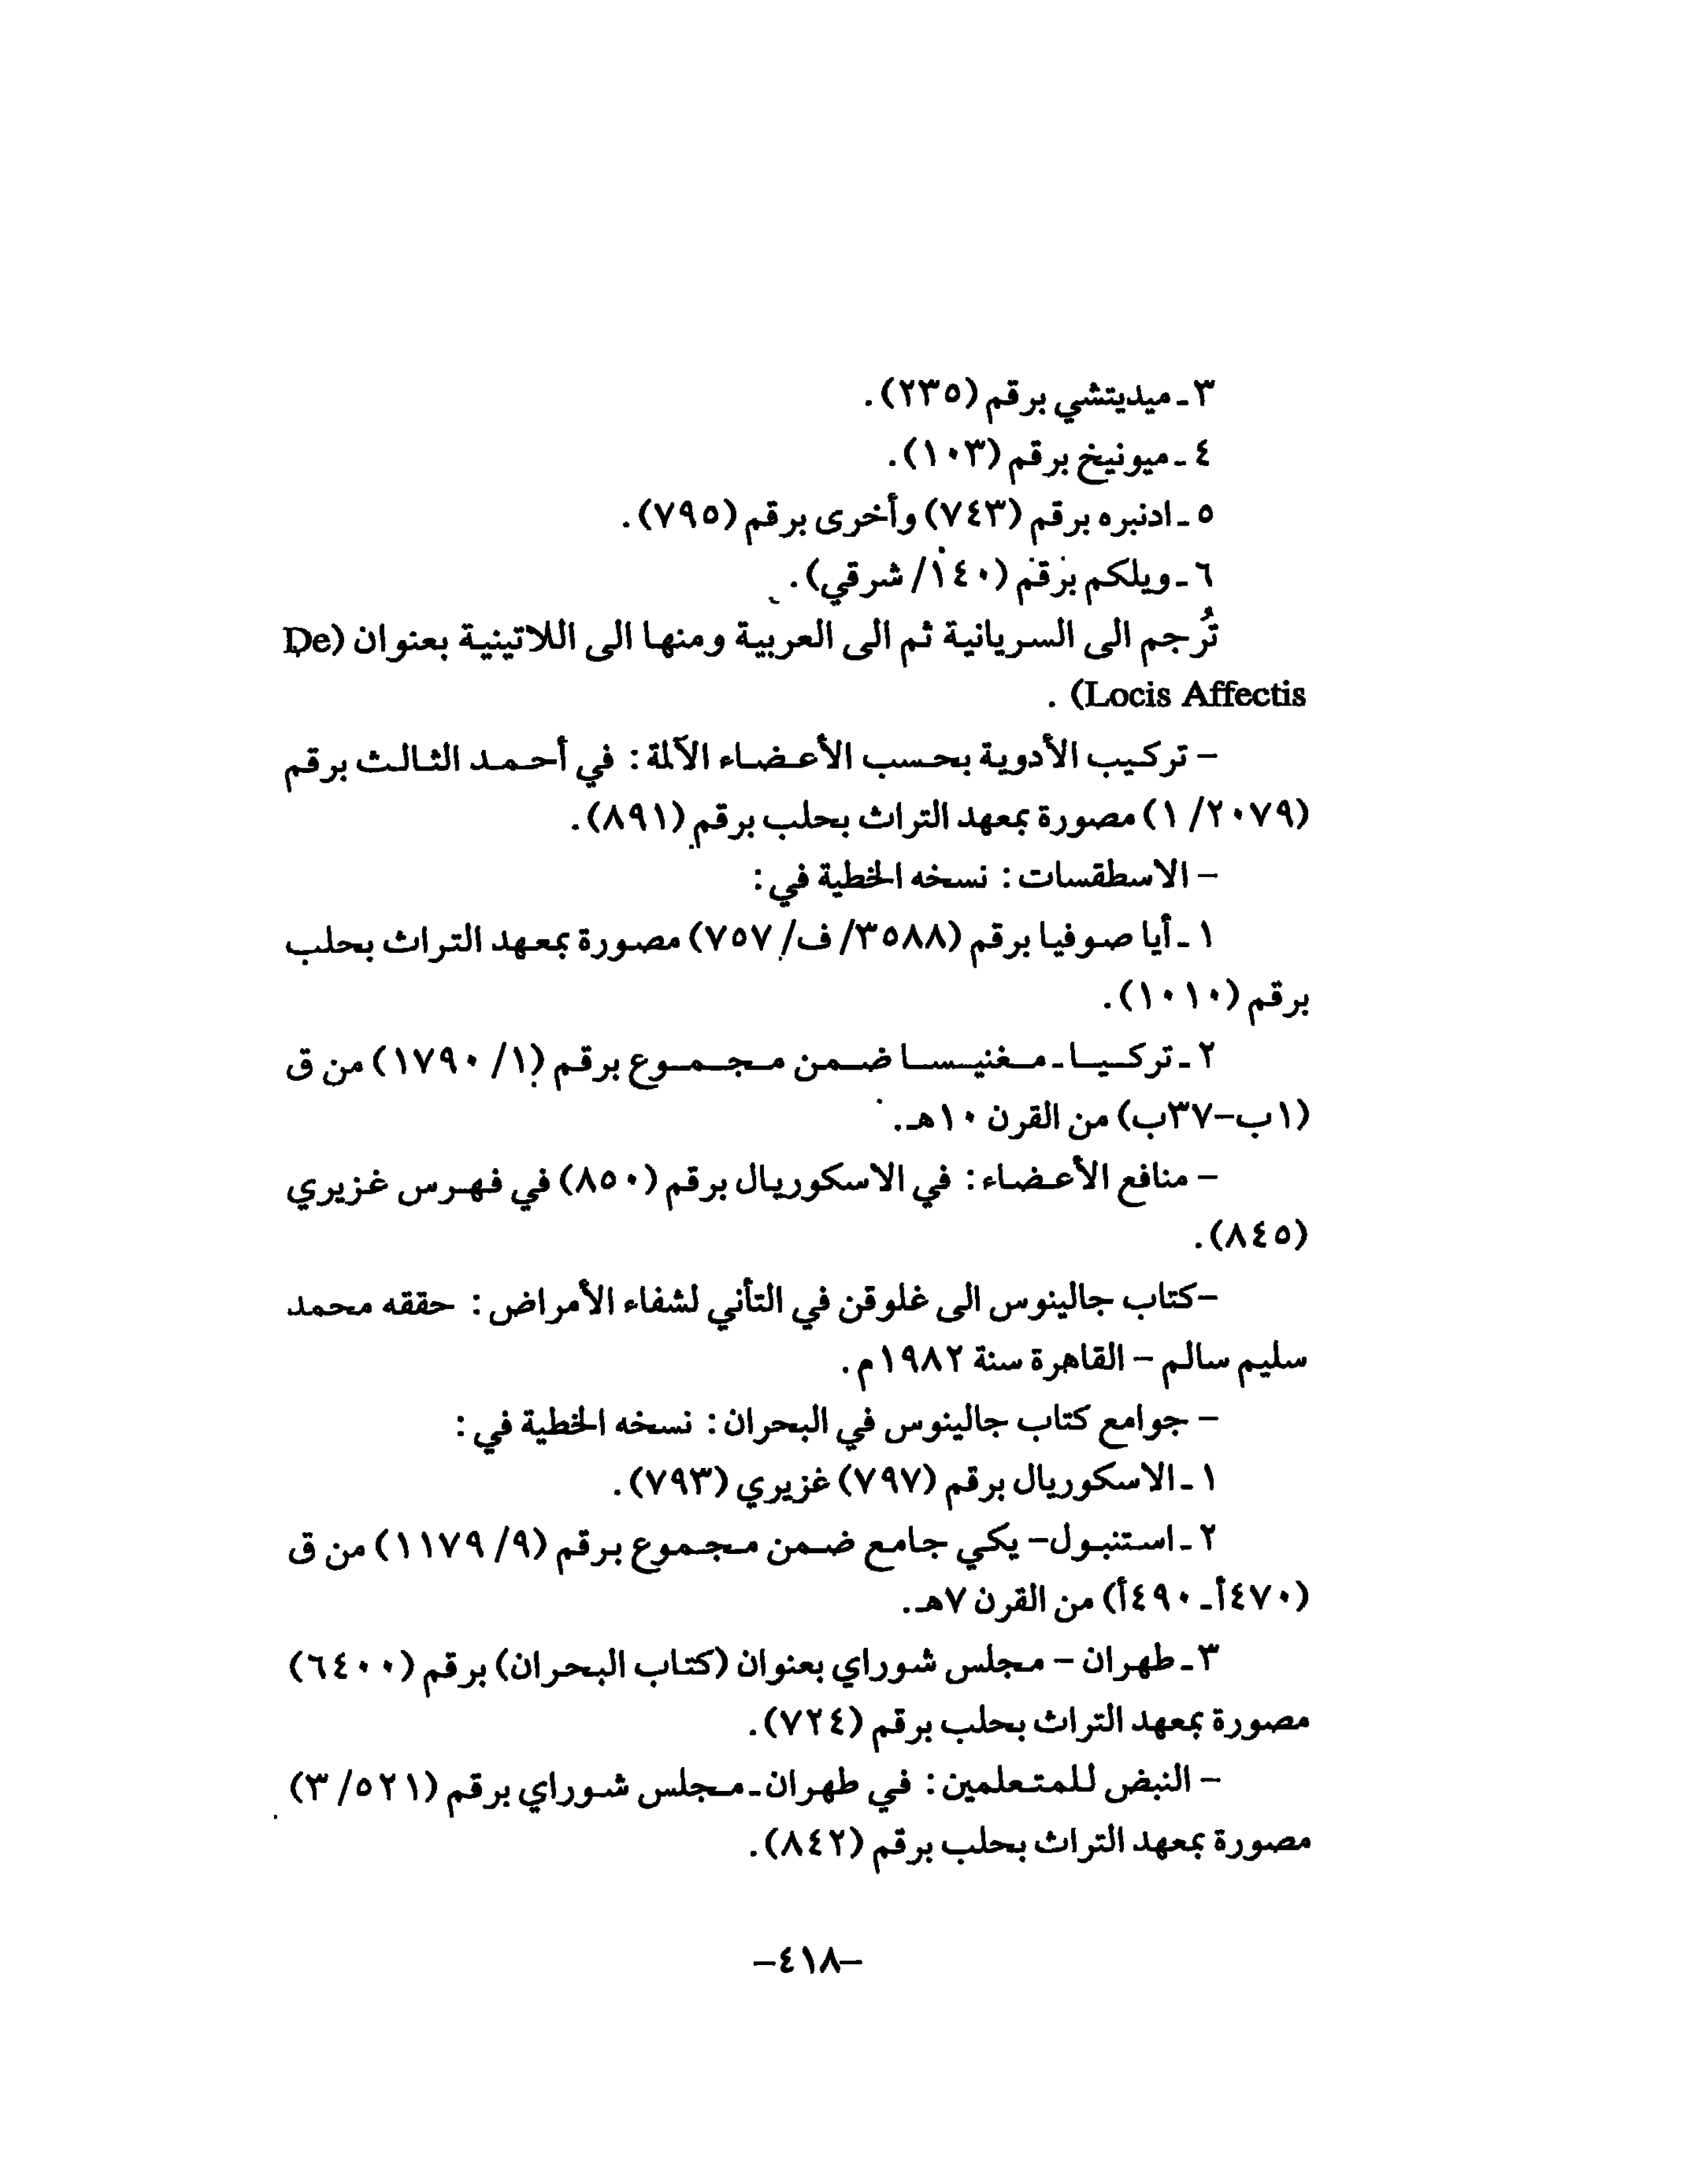 ٣ـ ميديتشي برقم (٢٣٥).
٤ ـ ميونيخ برقم (١٠٣).
٥ ـ ادنبره برقم (٧٤٣) وأخرى برقم (٧٩٥).
٦ ـ ويلكم برقم (١٤٠/ شرقي).
تُرجم الى السريانية ثم الى العربية ومنها الى اللاتينية بعنوان (De
Locis Affectis) .
– تركيب الأدوية بحسب الأعضاء الآلمة : في أحمد الثالث برقم
(٢٠٧٩/ ١) مصورة بمعهد التراث بحلب برقم (٨٩١).
– الاسطقسات : نسخه الخطية في :
١ ـ أيا صوفيا برقم (٣٥٨٨/ ف/ ٧٥٧) مصورة بمعهد التراث بحلب
برقم (١٠١٠).
٢ ـ تركيا ـ مغنيسا ضمن مجموع برقم (١/ ١٧٩٠) من ق
(١ب–٣٧ب) من القرن ١٠هـ.
– منافع الأعضاء : في الاسكوريال برقم (٨٥٠) في فهرس غزيري
(٨٤٥).
–كتاب جالينوس الى غلوقن في التأني لشفاء الأمراض : حققه محمد
سليم سالم – القاهرة سنة ١٩٨٢م.
– جوامع كتاب جالينوس في البحران : نسخه الخطية في :
١ ـ الاسكوريال برقم (٧٩٧) غزيري (٧٩٣).
٢ ـ استنبول– يكي جامع ضمن مجموع برقم (٩/ ١١٧٩) من ق
(٤٧٠أ ـ ٤٩٠أ) من القرن ٧هـ.
٣ ـ طهران – مجلس شوراي بعنوان (كتاب البحران) برقم (٦٤٠٠)
مصورة بمعهد التراث بحلب برقم (٧٢٤).
– النبض للمتعلمين : في طهران ـ مجلس شوراي برقم (٥٢١/ ٣)
مصورة بمعهد التراث بحلب برقم (٨٤٢).
–٤١٨–